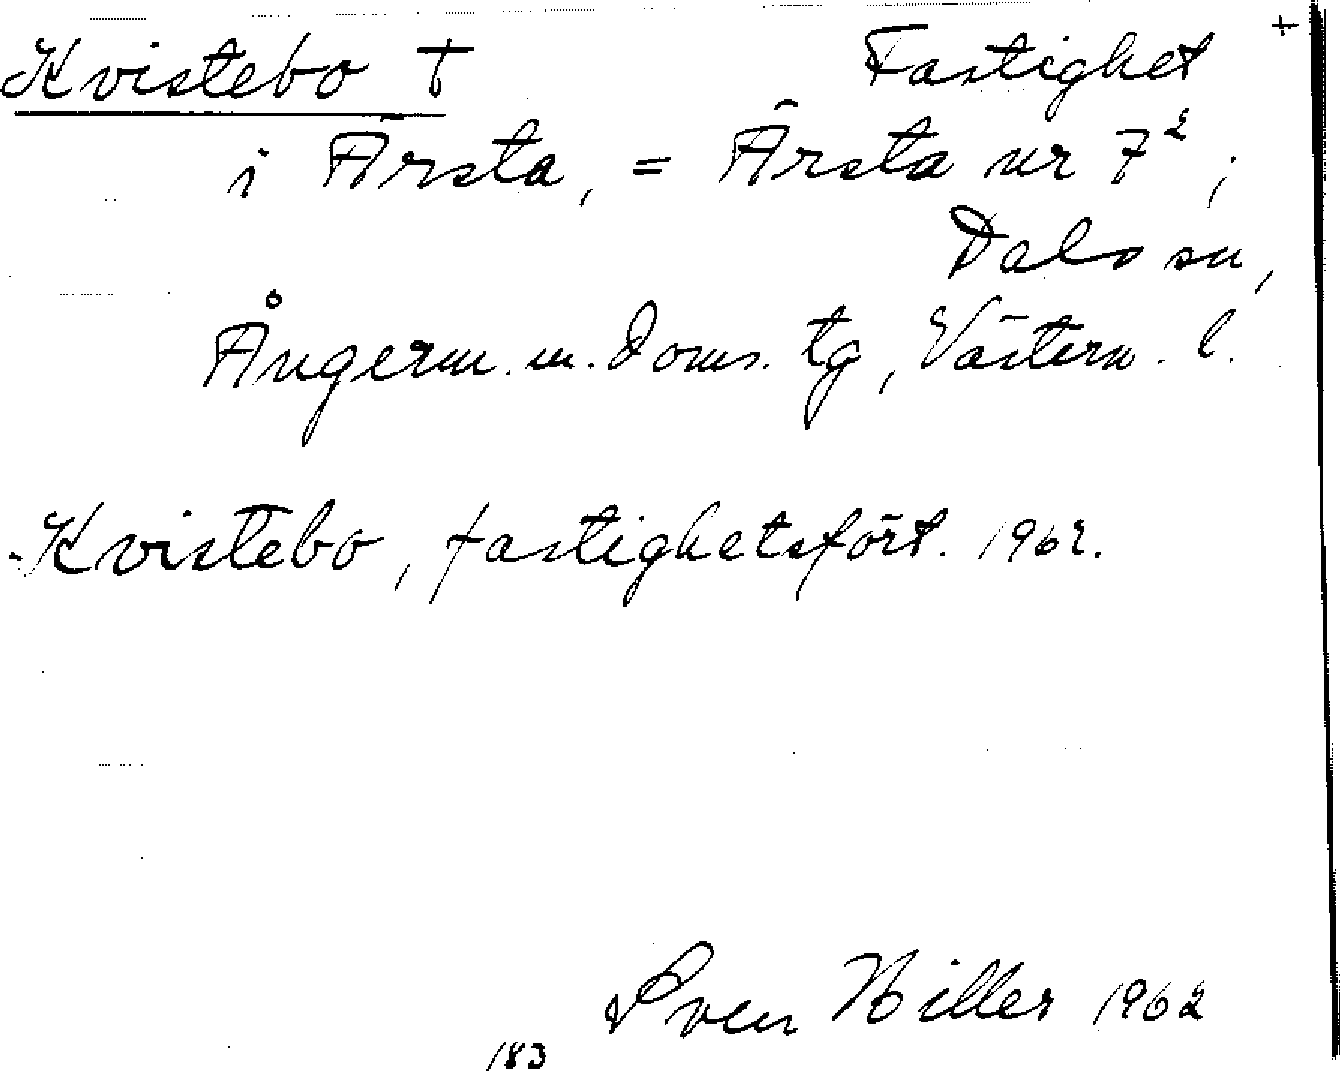 Kvistebo † Fastighet +
i Ärsta, = Ärsta nr 7²;
Dals sn,
Ångerm. m. doms. tg, Västern. l.
Kvistebo, fastighetsfört. 1962.
Sven Hiller 1962
183